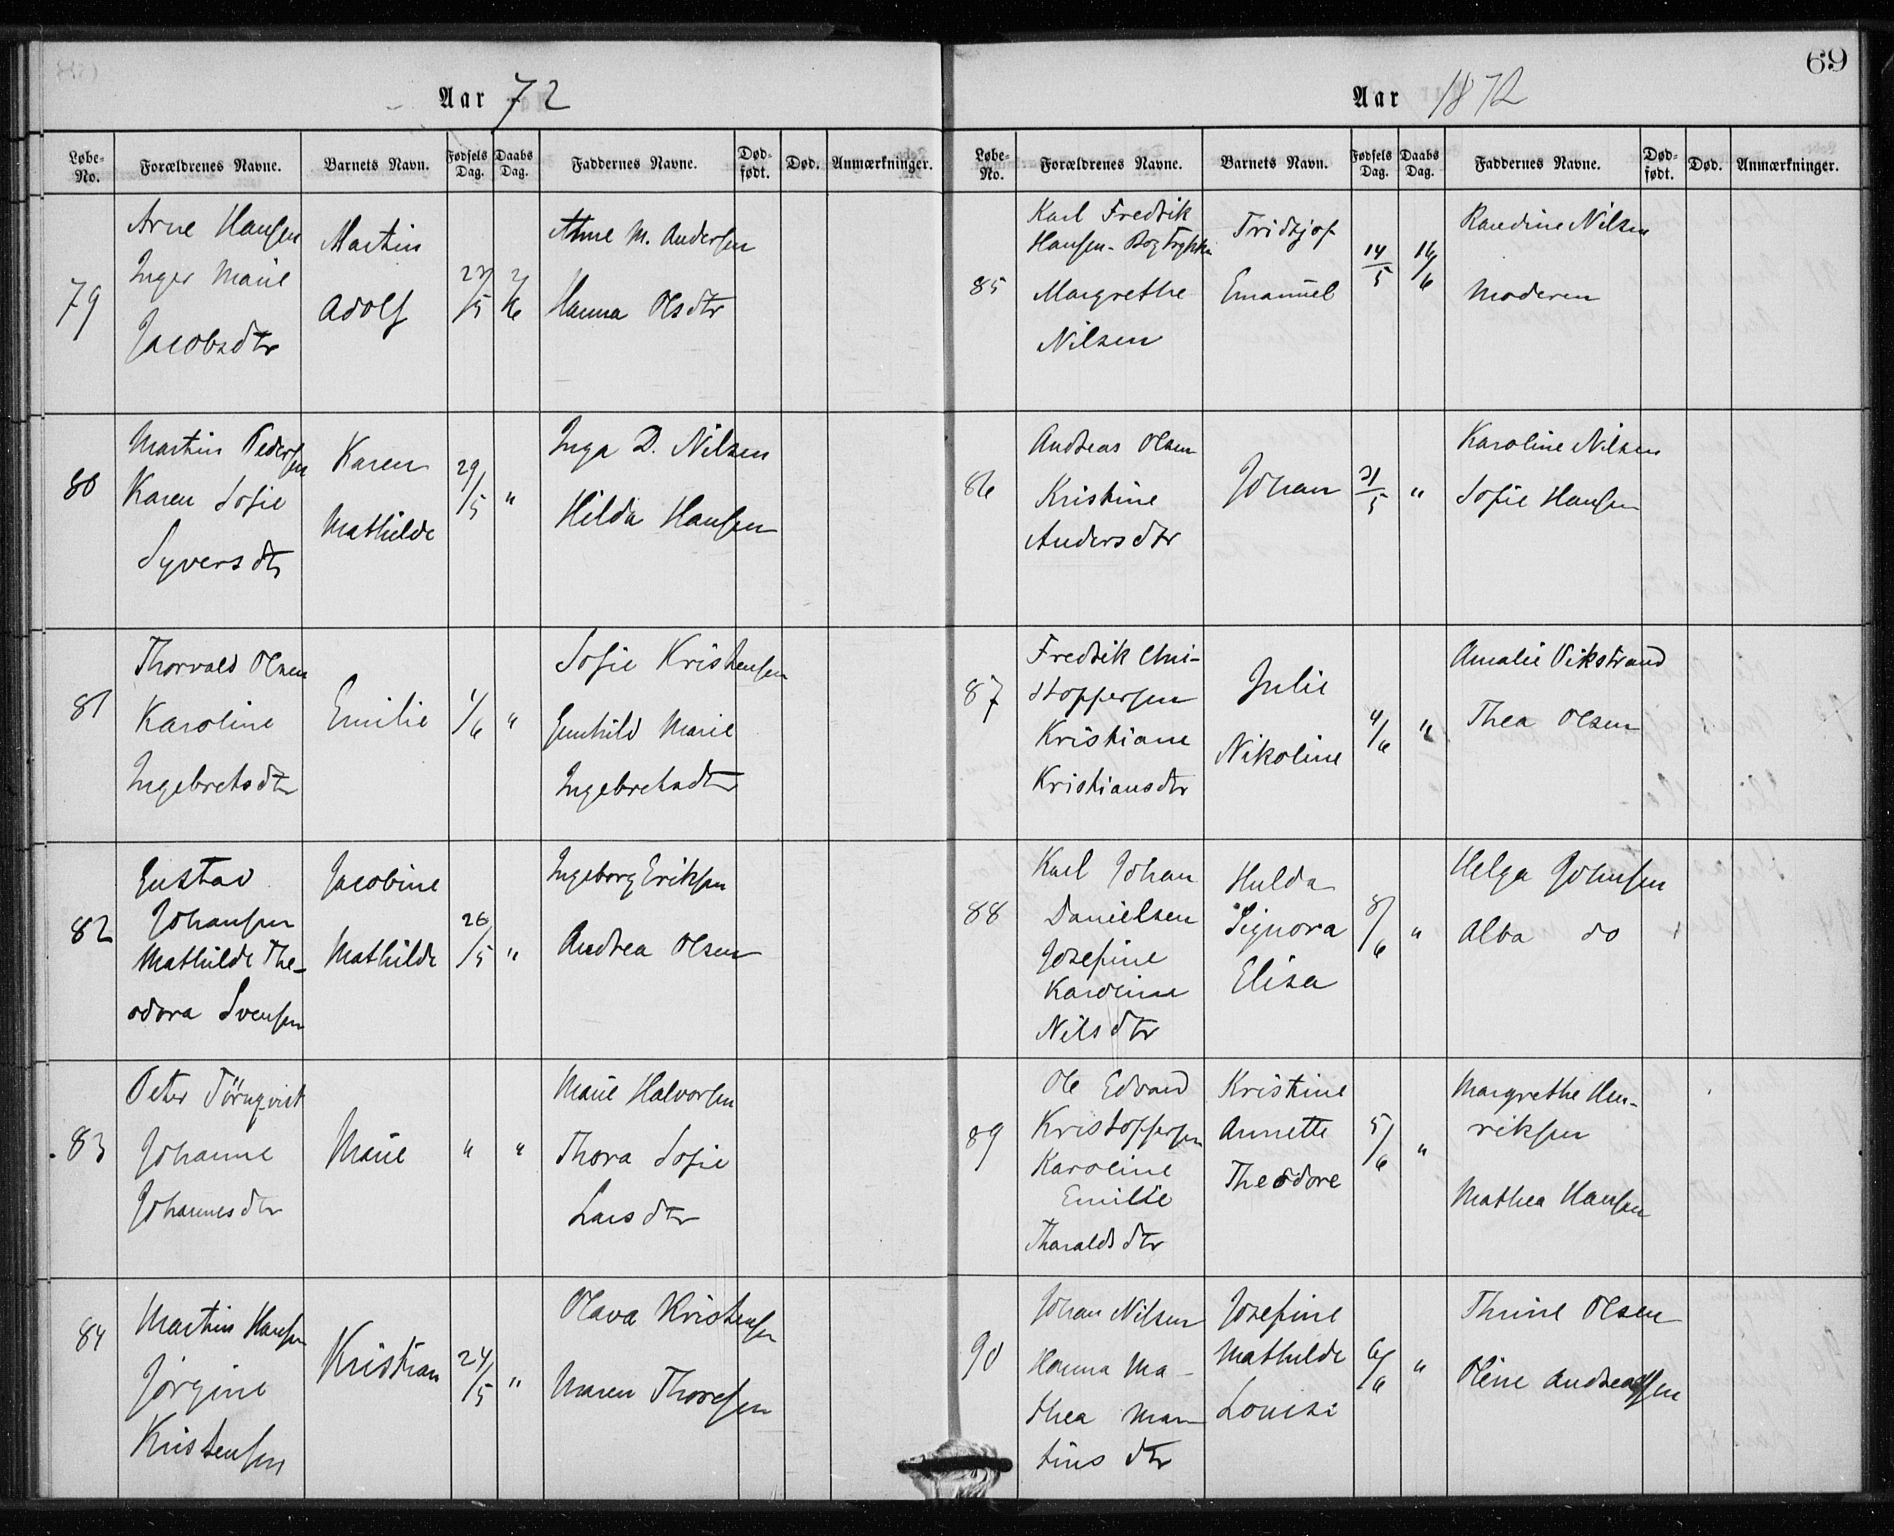 69
Aar 72
Løbe-No. Forældrenes Navne. Barnets Navn. Fødsels Dag. Daabs Dag. Faddernes Navne. Død-født. Død. Anmærkninger.
79
Arne Hansen
Inger Marie
Jacobsdtr
Martin
Adolf
23/5
2/6
Anne M. Andersen
Hanna Olsdtr
80
Martin Pedersen
Karen Sofie
Syversdtr
Karen
Mathilde
29/5
"
Inga D. Nilsen
Hilda Hansen
81
Thorvald Olsen
Karoline
Ingebretsdtr
Emilie
1/6
"
Sofie Kristensen
Gunhild Marie
Ingebretsdtr
82
Gustav
Johansen
Mathilde The-
odora Svensen
Jacobine
Mathilde
26/5
"
Ingeborg Eriksen
Andrea Olsen
83
Peter Törnqvist
Johanne
Johannesdtr
Marie
"
"
Marie Halvorsen
Thora Sofie
Larsdtr
84
Martin Hansen
Jörgine
Kristensen
Kristian
24/5
"
Olava Kristensen
Maren Thoresen
Aar 1872
Løbe-No. Forældrenes Navne. Barnets Navn. Fødsels Dag. Daabs Dag. Faddernes Navne. Død-født. Død. Anmærkninger.
85
Karl Fredrik
Hansen-
Margrethe
Nilsen
Fridtjof
Emanuel
14/5
16/6
Randine Nilsen
Moderen
86
Andreas Olsen
Kristine
Andersdtr
Johan
31/5
"
Karoline Nilsen
Sofie Hansen
87
Fredrik Chri-
stoffersen
Kristiane
Kristiansdtr
Julie
Nikoline
4/6
"
Amalie Vikstrand
Thea Olsen
88
Karl Johan
Danielsen
Josefine
Karoline
Nilsdtr
Hulda
Signora
Elisa
8/6
"
Helga Johnsen
Alba do
89
Ole Edvard
Kristoffersen
Karoline
Emilie
Tharaldsdtr
Kristine
Annette
Theodore
5/6
"
Margrethe Hen-
riksen
Mathea Hansen
90
Johan Nilsen
Hanna Ma-
thea Mar
tinsdtr
Josefine
Mathilde
Louise
6/6
"
Thrine Olsen
Oline Andreassen